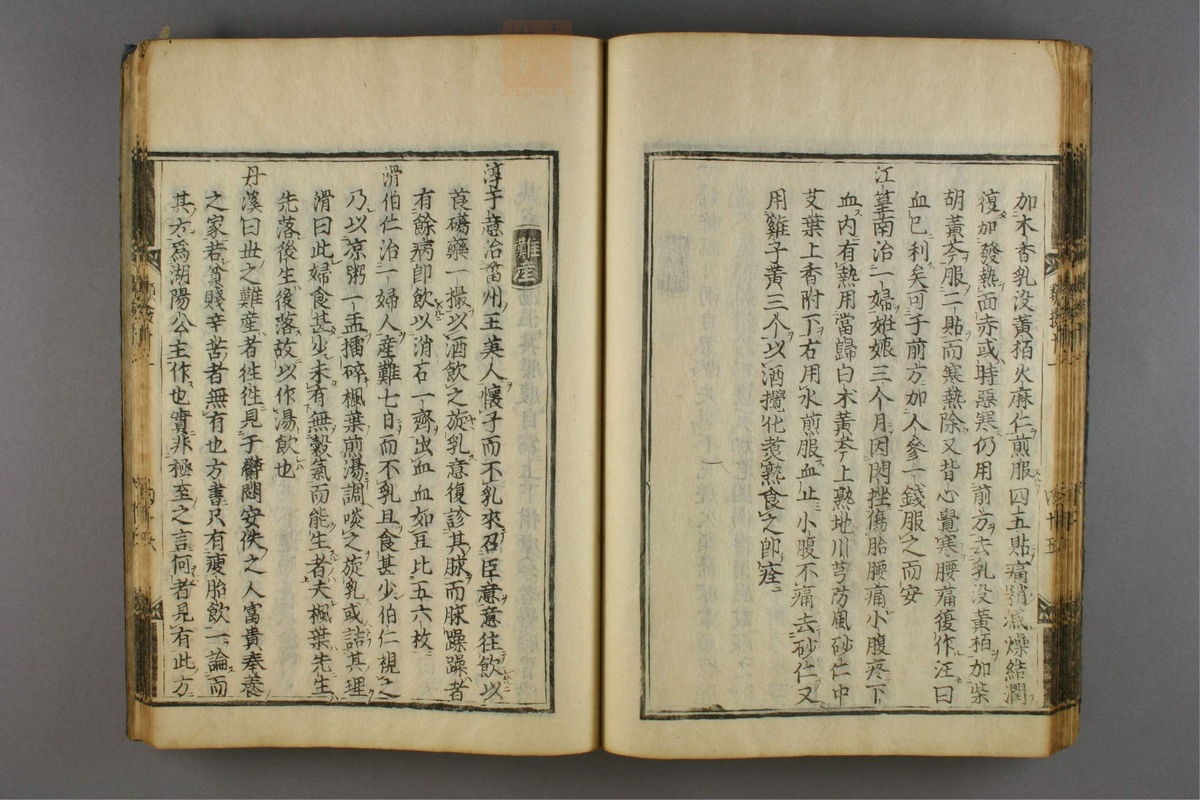 加木香乳没黄栢火麻仁煎服四五貼痛稍减燥結潤
復加發熱面赤或時惡寒仍用前方去乳没黄栢加柴
胡黄芩服二貼而寒熱除又背心覺寒腰痛復作汪曰
血已利矣可于前方加人參一錢服之而安
江篁南治一婦姙娠三个月因閃挫傷胎腰痛小腹疼下
血内有熱用當歸白木黄芩上熟地川芎防風砂仁中
艾葉上香附丁右用水煎服血止小腹不痛去砂仁又
用雞子黄三个以酒攪化煑熟食之即痊
難産
淳于意治菑州王美人懷子而不乳來召臣意意往飲以
莨䓪藥一撮以酒飲之旋乳意復診其脉而脉躁躁者
有餘病即飲以消石一齊出血血如豆比五六枚
滑伯仁治一婦人産難七日而不乳且食甚少伯仁視之
乃以凉粥一盂擂碎楓葉煎湯調啖之旋乳或詰其理
滑曰此婦食甚少未有無榖氣而能生者夫楓葉先生
先落後生後落故以作湯飲也
丹溪曰世之難産者徃徃見于鬱悶安佚之人富貴奉養
之家若貧賤辛苦者無有也方書只有瘦胎飲一論而
其方爲湖陽公主作也實非極至之言何者見有此方